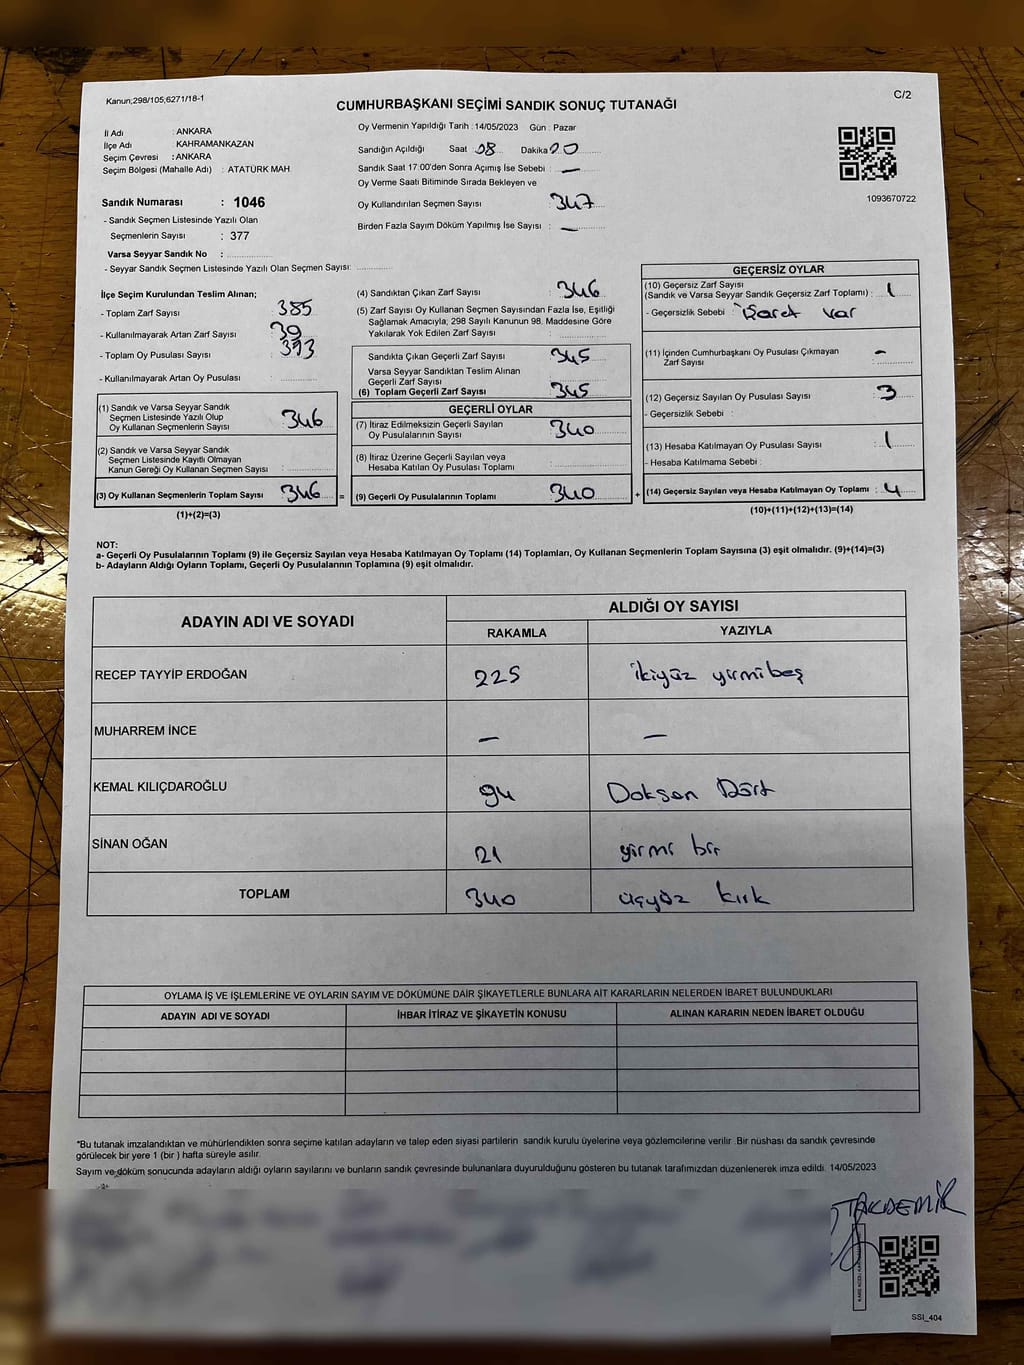 Kanun;298/105;6271/18-1
C/2
CUMHURBAŞKANI SEÇİMİ SANDIK SONUÇ TUTANAĞI
İl Adı : ANKARA
İlçe Adı KAHRAMANKAZAN
Seçim Çevresi : ANKARA
Seçim Bölgesi (Mahalle Adı) : ATATÜRK MAH.
Oy Vermenin Yapıldığı Tarih : 14/05/2023 Gün : Pazar
Sandığın Açıldığı Saat : 08 Dakika
Sandık Saat 17:00'den Sonra Açımış İse Sebebi : —
Oy Verme Saati Bitiminde Sırada Bekleyen ve
Oy Kullandırılan Seçmen Sayısı : 347
Birden Fazla Sayım Döküm Yapılmış İse Sayısı : —
1093670722
Sandık Numarası : 1046
- Sandık Seçmen Listesinde Yazılı Olan
Seçmenlerin Sayısı : 377
Varsa Seyyar Sandık No :
- Seyyar Sandık Seçmen Listesinde Yazılı Olan Seçmen Sayısı:
İlçe Seçim Kurulundan Teslim Alınan;
- Toplam Zarf Sayısı : 385
- Kullanılmayarak Artan Zarf Sayısı : 39
- Toplam Oy Pusulası Sayısı : 393
- Kullanılmayarak Artan Oy Pusulası :
(1) Sandık ve Varsa Seyyar Sandık
Seçmen Listesinde Yazılı Olup
Oy Kullanan Seçmenlerin Sayısı : 346
(2) Sandık ve Varsa Seyyar Sandık
Seçmen Listesinde Kayıtlı Olmayan
Kanun Gereği Oy Kullanan Seçmen Sayısı :
(3) Oy Kullanan Seçmenlerin Toplam Sayısı : 346
(1)+(2)=(3)
(4) Sandıktan Çıkan Zarf Sayısı : 346
(5) Zarf Sayısı Oy Kullanan Seçmen Sayısından Fazla İse, Eşitliği
Sağlamak Amacıyla, 298 Sayılı Kanunun 98. Maddesine Göre
Yakılarak Yok Edilen Zarf Sayısı :
Sandıkta Çıkan Geçerli Zarf Sayısı : 345
Varsa Seyyar Sandıktan Teslim Alınan
Geçerli Zarf Sayısı :
(6) Toplam Geçerli Zarf Sayısı : 345
GEÇERLİ OYLAR
(7) İtiraz Edilmeksizin Geçerli Sayılan
Oy Pusulalarının Sayısı : 340
(8) İtiraz Üzerine Geçerli Sayılan veya
Hesaba Katılan Oy Pusulası Toplamı :
= (9) Geçerli Oy Pusulalarının Toplamı : 340 +
GEÇERSİZ OYLAR
(10) Geçersiz Zarf Sayısı
(Sandık ve Varsa Seyyar Sandık Geçersiz Zarf Toplamı) : 1
- Geçersizlik Sebebi : İşaret var
(11) İçinden Cumhurbaşkanı Oy Pusulası Çıkmayan
Zarf Sayısı : -
(12) Geçersiz Sayılan Oy Pusulası Sayısı : 3
- Geçersizlik Sebebi :
(13) Hesaba Katılmayan Oy Pusulası Sayısı : 1
- Hesaba Katılmama Sebebi :
(14) Geçersiz Sayılan veya Hesaba Katılmayan Oy Toplamı : 4
(10)+(11)+(12)+(13)=(14)
NOT:
a- Geçerli Oy Pusulalarının Toplamı (9) ile Geçersiz Sayılan veya Hesaba Katılmayan Oy Toplamı (14) Toplamları, Oy Kullanan Seçmenlerin Toplam Sayısına (3) eşit olmalıdır. (9)+(14)=(3)
b- Adayların Aldığı Oyların Toplamı, Geçerli Oy Pusulalarının Toplamına (9) eşit olmalıdır.
ADAYIN ADI VE SOYADI
ALDIĞI OY SAYISI
RAKAMLA YAZIYLA
RECEP TAYYİP ERDOĞAN 225 ikiyüz yirmibeş
MUHARREM İNCE — —
KEMAL KILIÇDAROĞLU 94 Doksan Dört
SİNAN OĞAN 21 yirmi bir
TOPLAM 340 üçyüz kırk
OYLAMA İŞ VE İŞLEMLERİNE VE OYLARIN SAYIM VE DÖKÜMÜNE DAİR ŞİKAYETLERLE BUNLARA AİT KARARLARIN NELERDEN İBARET BULUNDUKLARI
ADAYIN ADI VE SOYADI İHBAR İTİRAZ VE ŞİKAYETİN KONUSU ALINAN KARARIN NEDEN İBARET OLDUĞU
*Bu tutanak imzalandıktan ve mühürlendikten sonra seçime katılan adayların ve talep eden siyasi partilerin sandık kurulu üyelerine veya gözlemcilerine verilir. Bir nüshası da sandık çevresinde
görülecek bir yere 1 (bir ) hafta süreyle asılır.
Sayım ve döküm sonucunda adayların aldığı oyların sayılarını ve bunların sandık çevresinde bulunanlara duyurulduğunu gösteren bu tutanak tarafımızdan düzenlenerek imza edildi. 14/05/2023
TAKDEMİR
SSI_404